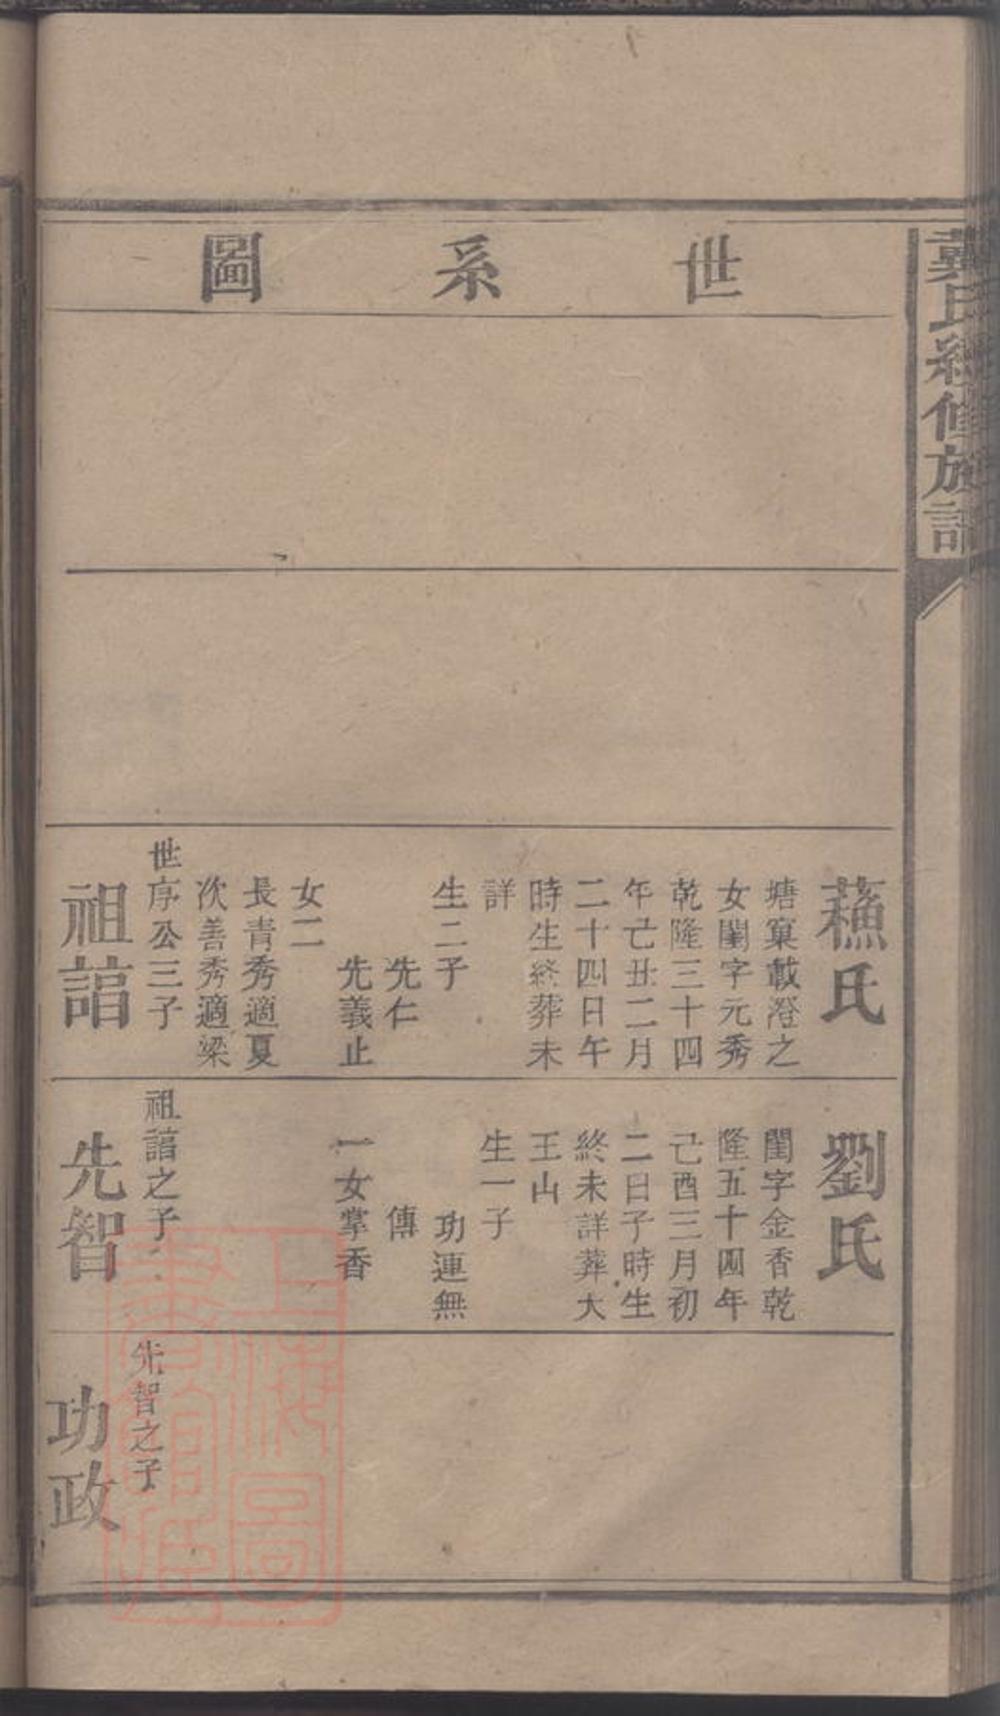 世系圖
氏續修族譜
蘓氏
塘窠載澄之
女閨字元秀
乾隆三十四
年己丑二月
二十四日午
時生終葬未
詳
生二子
先仁
先義止
女二
長青秀適夏
次善秀適梁
世序公三子
祖誥
劉氏
閨字金香乾
隆五十四年
己酉三月初
二日子時生
終未詳葬大
王山
生一子
功連無
傳
一女掌香
祖誥之子
先智
先智之子
功政
上海圖書館藏